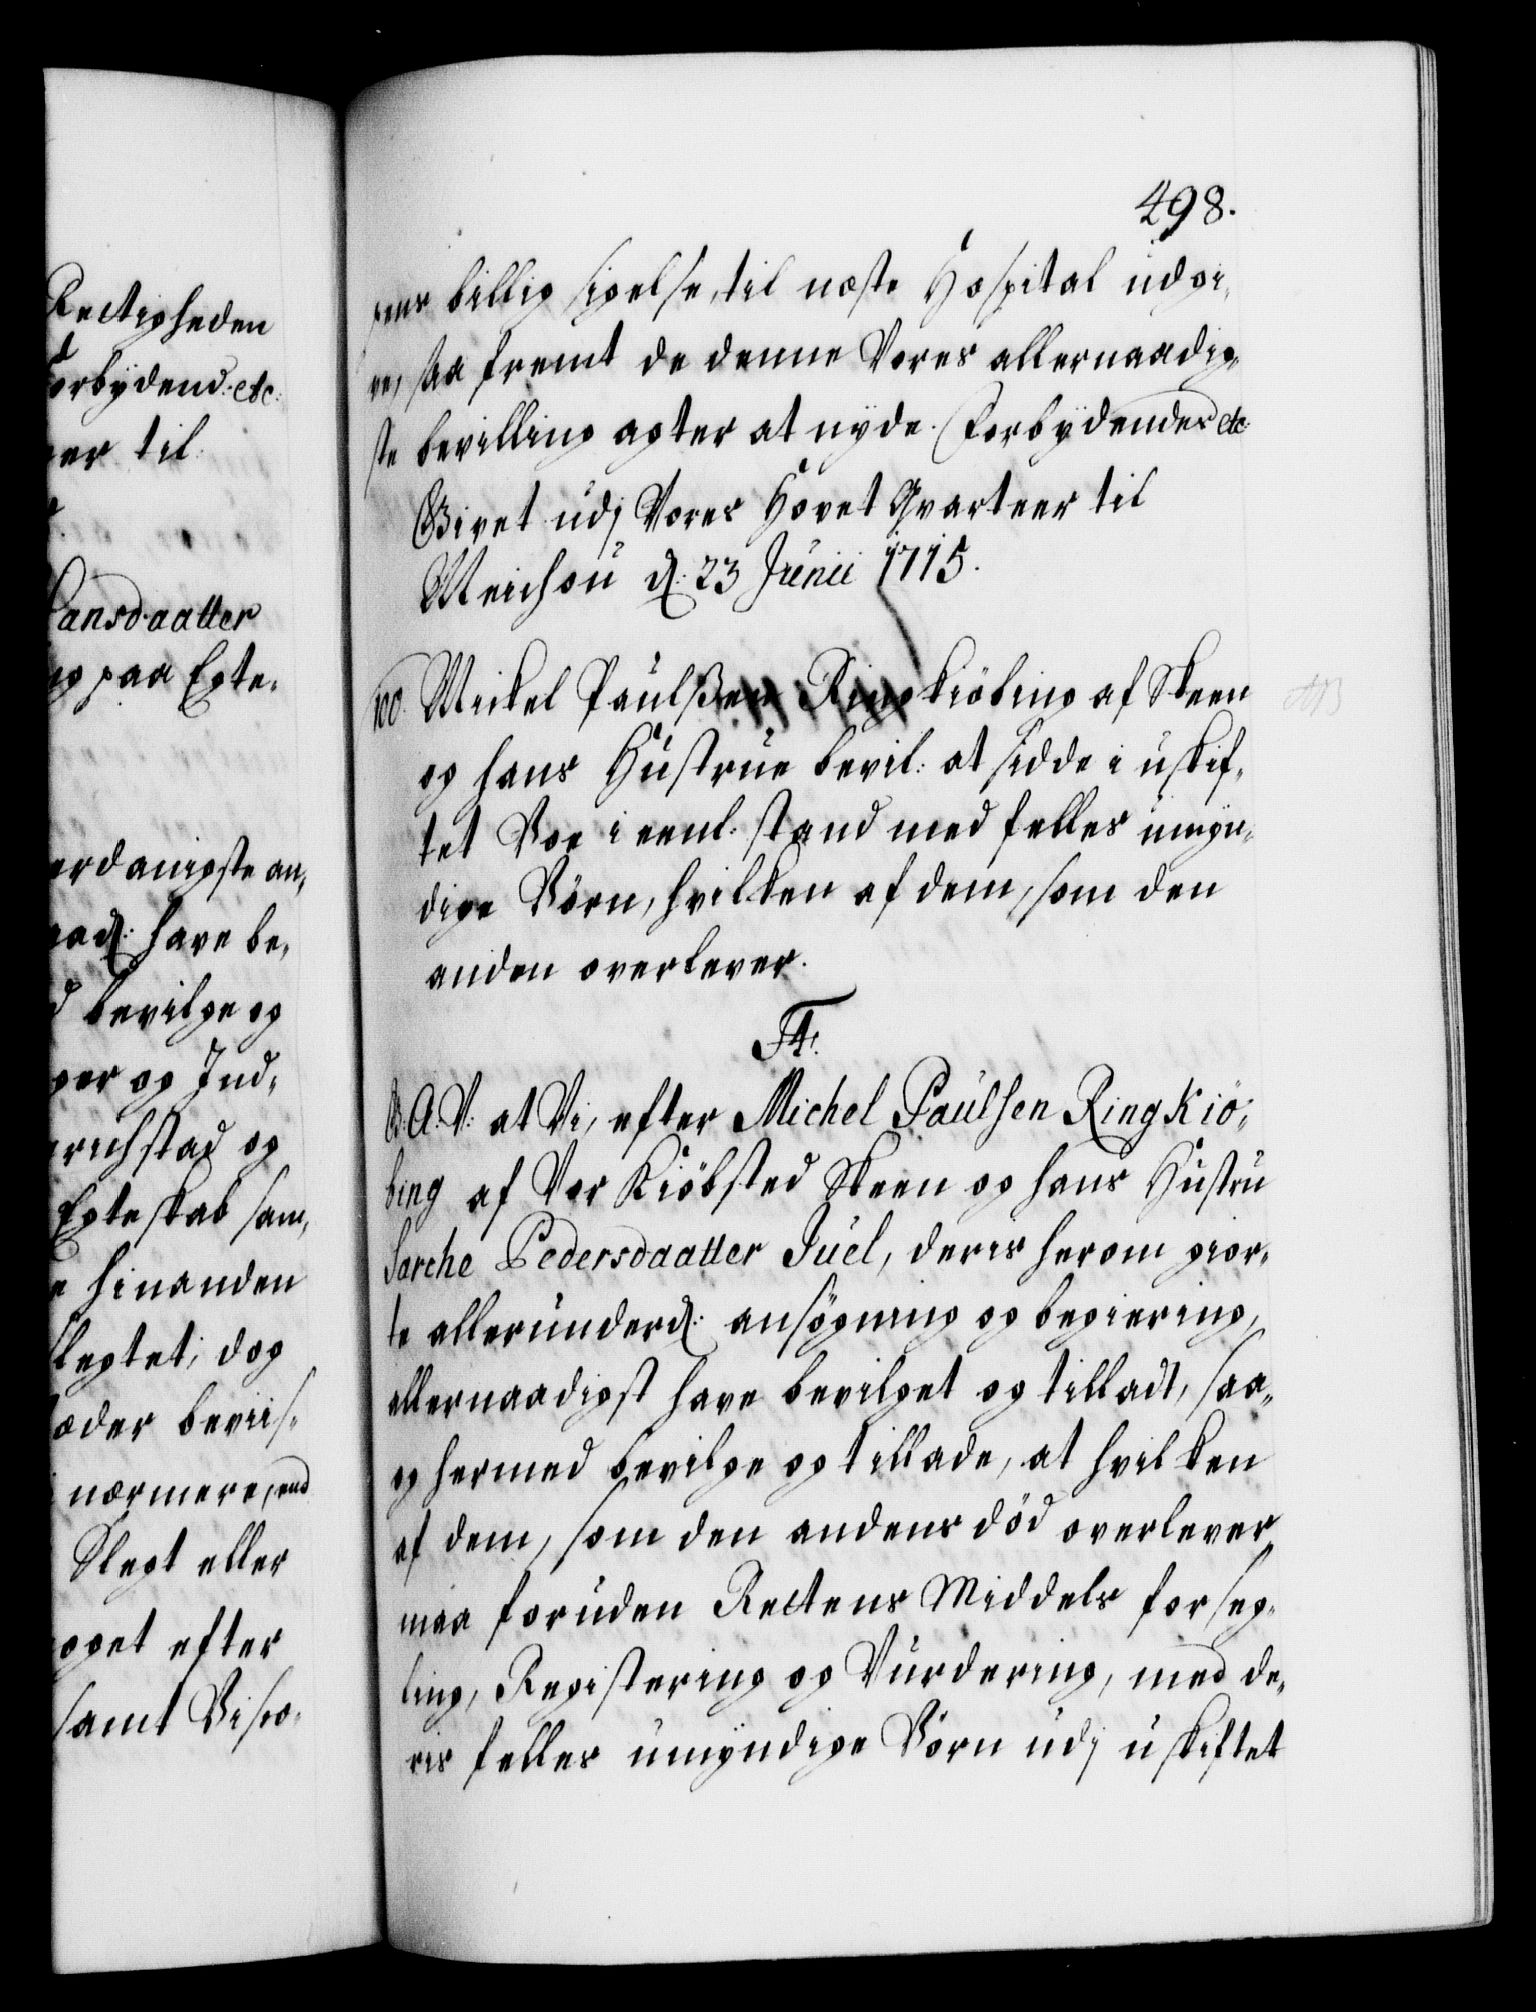 Rectigheden
orbÿdend: etc:
er til
ansdaatter
og paa Egte-
erdanigste an-
aad: have be-
bevilge og
ger og Ind-
richstad og
Egteskab sam-
hinanden
slegtet; dog
æder beviis-
nærmere, end
Slegt eller
oget efter
samt Vispo-
498.
pens billig sigelse, til næste Hospital udgi-
ve, saa fremt de denne Vores allernaadig-
ste bevilling agter at nyde. Forbÿdendes etc
Givet udj Vores Hovet Qvarteer til
Weichou d: 23 Junii 1715.
100. Mickel Paulßen Ringkiöbing af Skeen
og hans Hustrue bevil: at sidde i uskif-
tet Boe i eenl: stand med felles umyn-
dige Börn, hvilken af dem, som den
anden overlever.
F4.
G: A: V: at Vi, efter Michel Paulsen Ringkiö-
bing af Vor Kiöbsted Skeen og hans Hustru
Sarche Pedersdaatter Juel, deris herom gior-
te allerunderd: ansögning og begiering,
allernaadigst have bevilget og tilladt, saa-
og hermed bevilge og tillade, at hvilken
af dem, som den andens död overlever
maa foruden Rettens Middels forseg-
ling, Registering og Vurdering, med de-
ris felles umÿndige Börn udj uskiftet